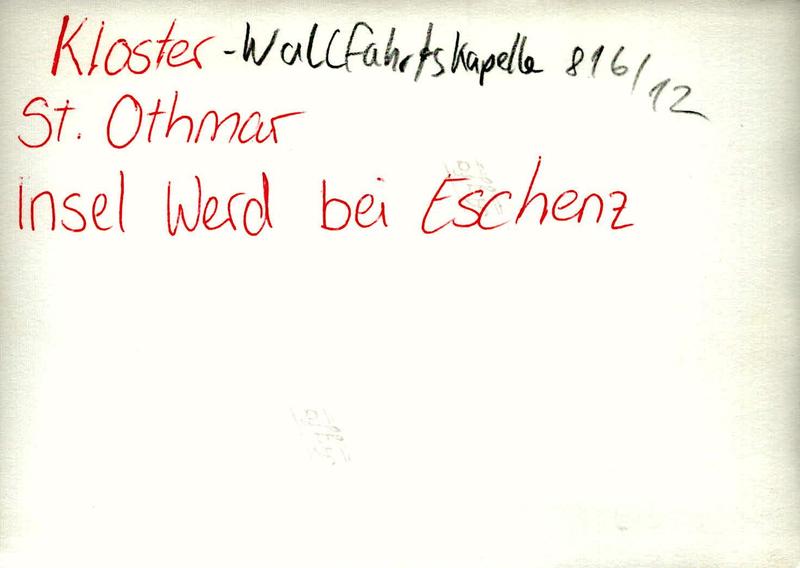 Kloster-Wallfahrtskapelle 816/12
St. Othmar
Insel Werd bei Eschenz